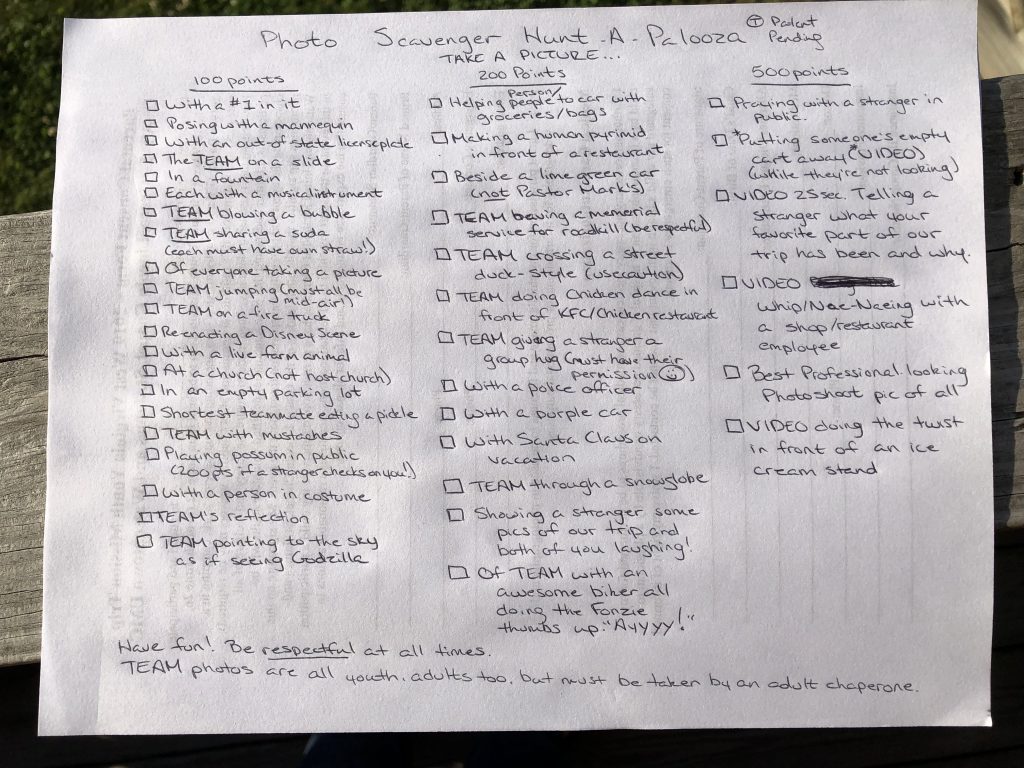 Photo Scavenger Hunt-A-Palooza Ⓣ Patent
Pending
TAKE A PICTURE...
100 points
With a #1 in it
Posing with a mannequin
With an out-of-state license plate
The TEAM on a slide
In a fountain
Each with a musical instrument
TEAM blowing a bubble
TEAM sharing a soda
(each must have own straw!)
Of everyone taking a picture
TEAM jumping (must all be
mid-air!)
TEAM on a fire truck
Re-enacting a Disney Scene
With a live farm animal
At a church (not host church)
In an empty parking lot
Shortest teammate eating a pickle
TEAM with mustaches
Playing possum in public
(200pts if a stranger checks on you!)
With a person in costume
TEAM's reflection
TEAM pointing to the sky
as if seeing Godzilla
200 Points
Person/
Helping people to car with
groceries/bags
Making a human pyrimid
in front of a restaurant
Beside a lime green car
(not Pastor Mark's)
TEAM having a memorial
service for roadkill (be respectful)
TEAM crossing a street
duck-style (use caution)
TEAM doing Chicken dance in
front of KFC/Chicken restaurant
TEAM giving a stranger a
group hug (must have their
permission ☺)
With a police officer
With a purple car
With Santa Claus on
vacation
TEAM through a snowglobe
Showing a stranger some
pics of our trip and
both of you laughing!
Of TEAM with an
awesome biker all
doing the Fonzie
thumbs up: "Ayyyy!"
500 points
Praying with a stranger in
public.
*Putting someone's empty
cart away (*VIDEO)
(while they're not looking)
VIDEO 25 sec. Telling a
stranger what your
favorite part of our
trip has been and why.
VIDEO
Whip/Nae-Naeing with
a shop/restaurant
employee
Best Professional looking
Photoshoot pic of all
VIDEO doing the twist
in front of an ice
cream stand
Have fun! Be respectful at all times.
TEAM photos are all youth, adults too, but must be taken by an adult chaperone.